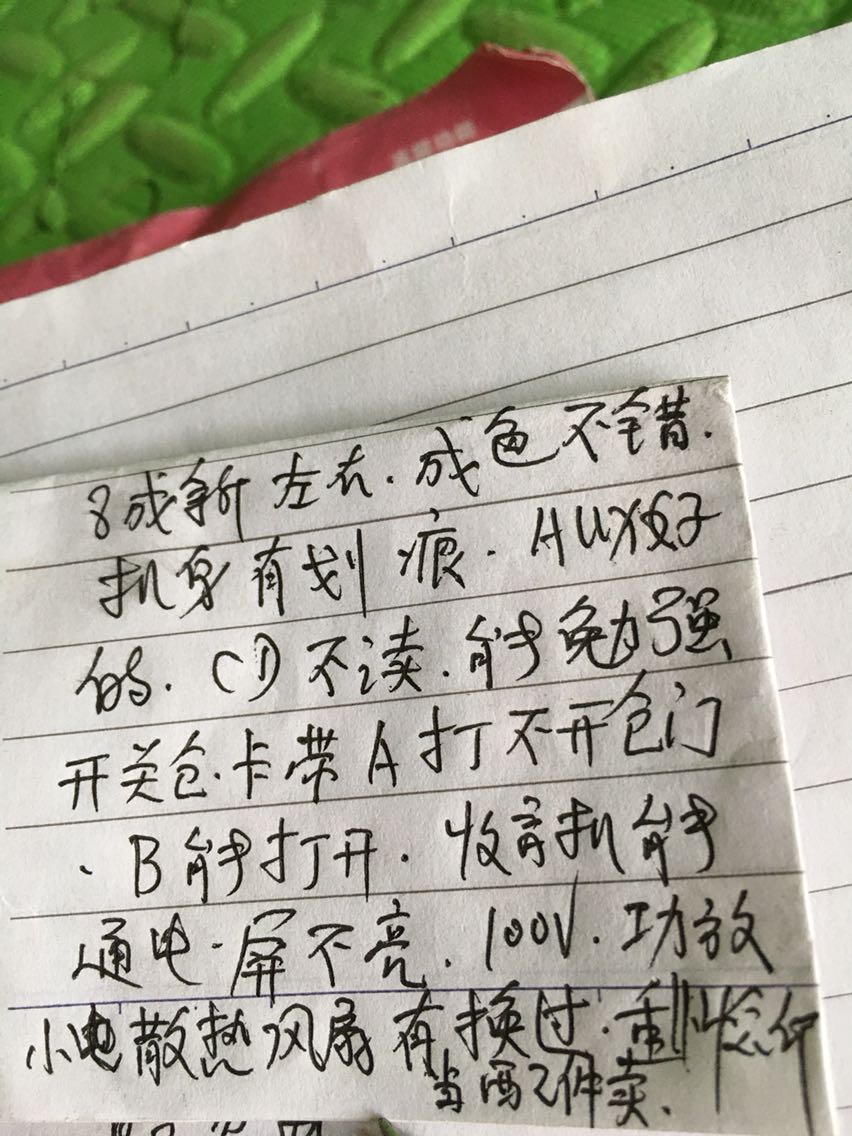 8成新左右.成色不错.
机身有划痕.AUX好
的.CD不读.能勉强
开关仓.卡带A打不开仓门
、B能打开.收音机能
通电.屏不亮.100V.功放
小电散热风扇有换过.剩
当西2件卖.